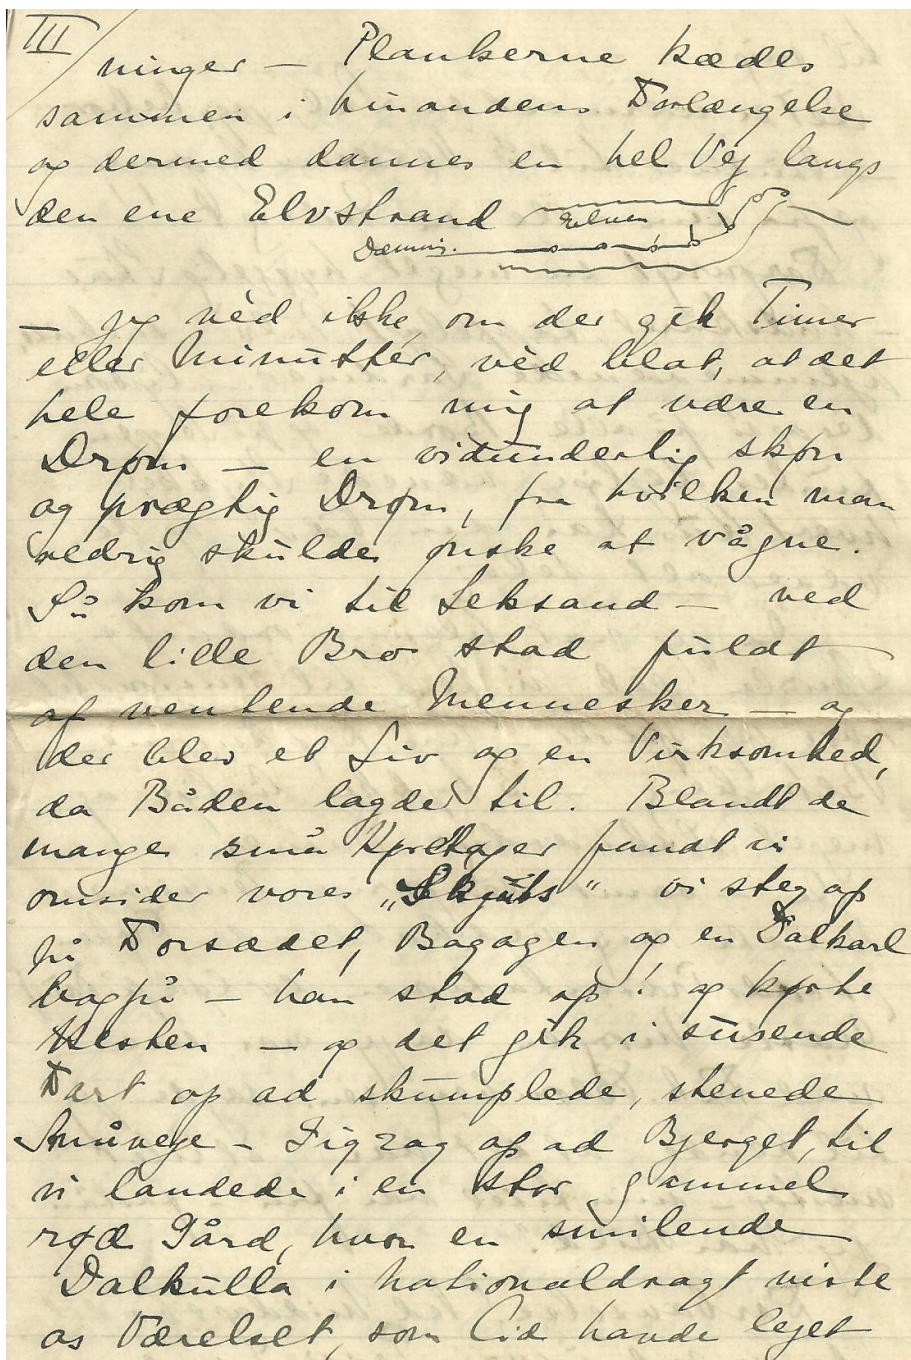 III
ninger — Plankerne kædes
sammen i hinandens Forlængelse
og dermed dannes en hel Vej langs
den ene Elvstrand
Elven
Dæmn.
— jeg vèd ikke, om der gik Timer
eller Minutter, vèd blot, at det
hele forekom mig at være en
Drøm — en vidunderlig skøn
og prægtig Drøm, fra hvilken man
aldrig skulde ønske at vågne.
Så kom vi til Leksand — ved
den lille Bro stod fuldt
af ventende Mennesker — og
der blev et Liv og en Virksomhed,
da Båden lagde til. Blandt de
mange små Køretøjer fandt vi
omsider vores „Skjuts" vi steg op
på Forsædet, Bagagen og en Dalkarl
bagpå — han stod op! og kørte
Hesten — og det gik i susende
Fart op ad skumplede, stenede
Småveje - Zigzag op ad Bjerget, til
vi landede i en stor gammel
rød Gård, hvor en smilende
Dalkulla i Nationaldragt viste
os Værelset, som Cid havde lejet